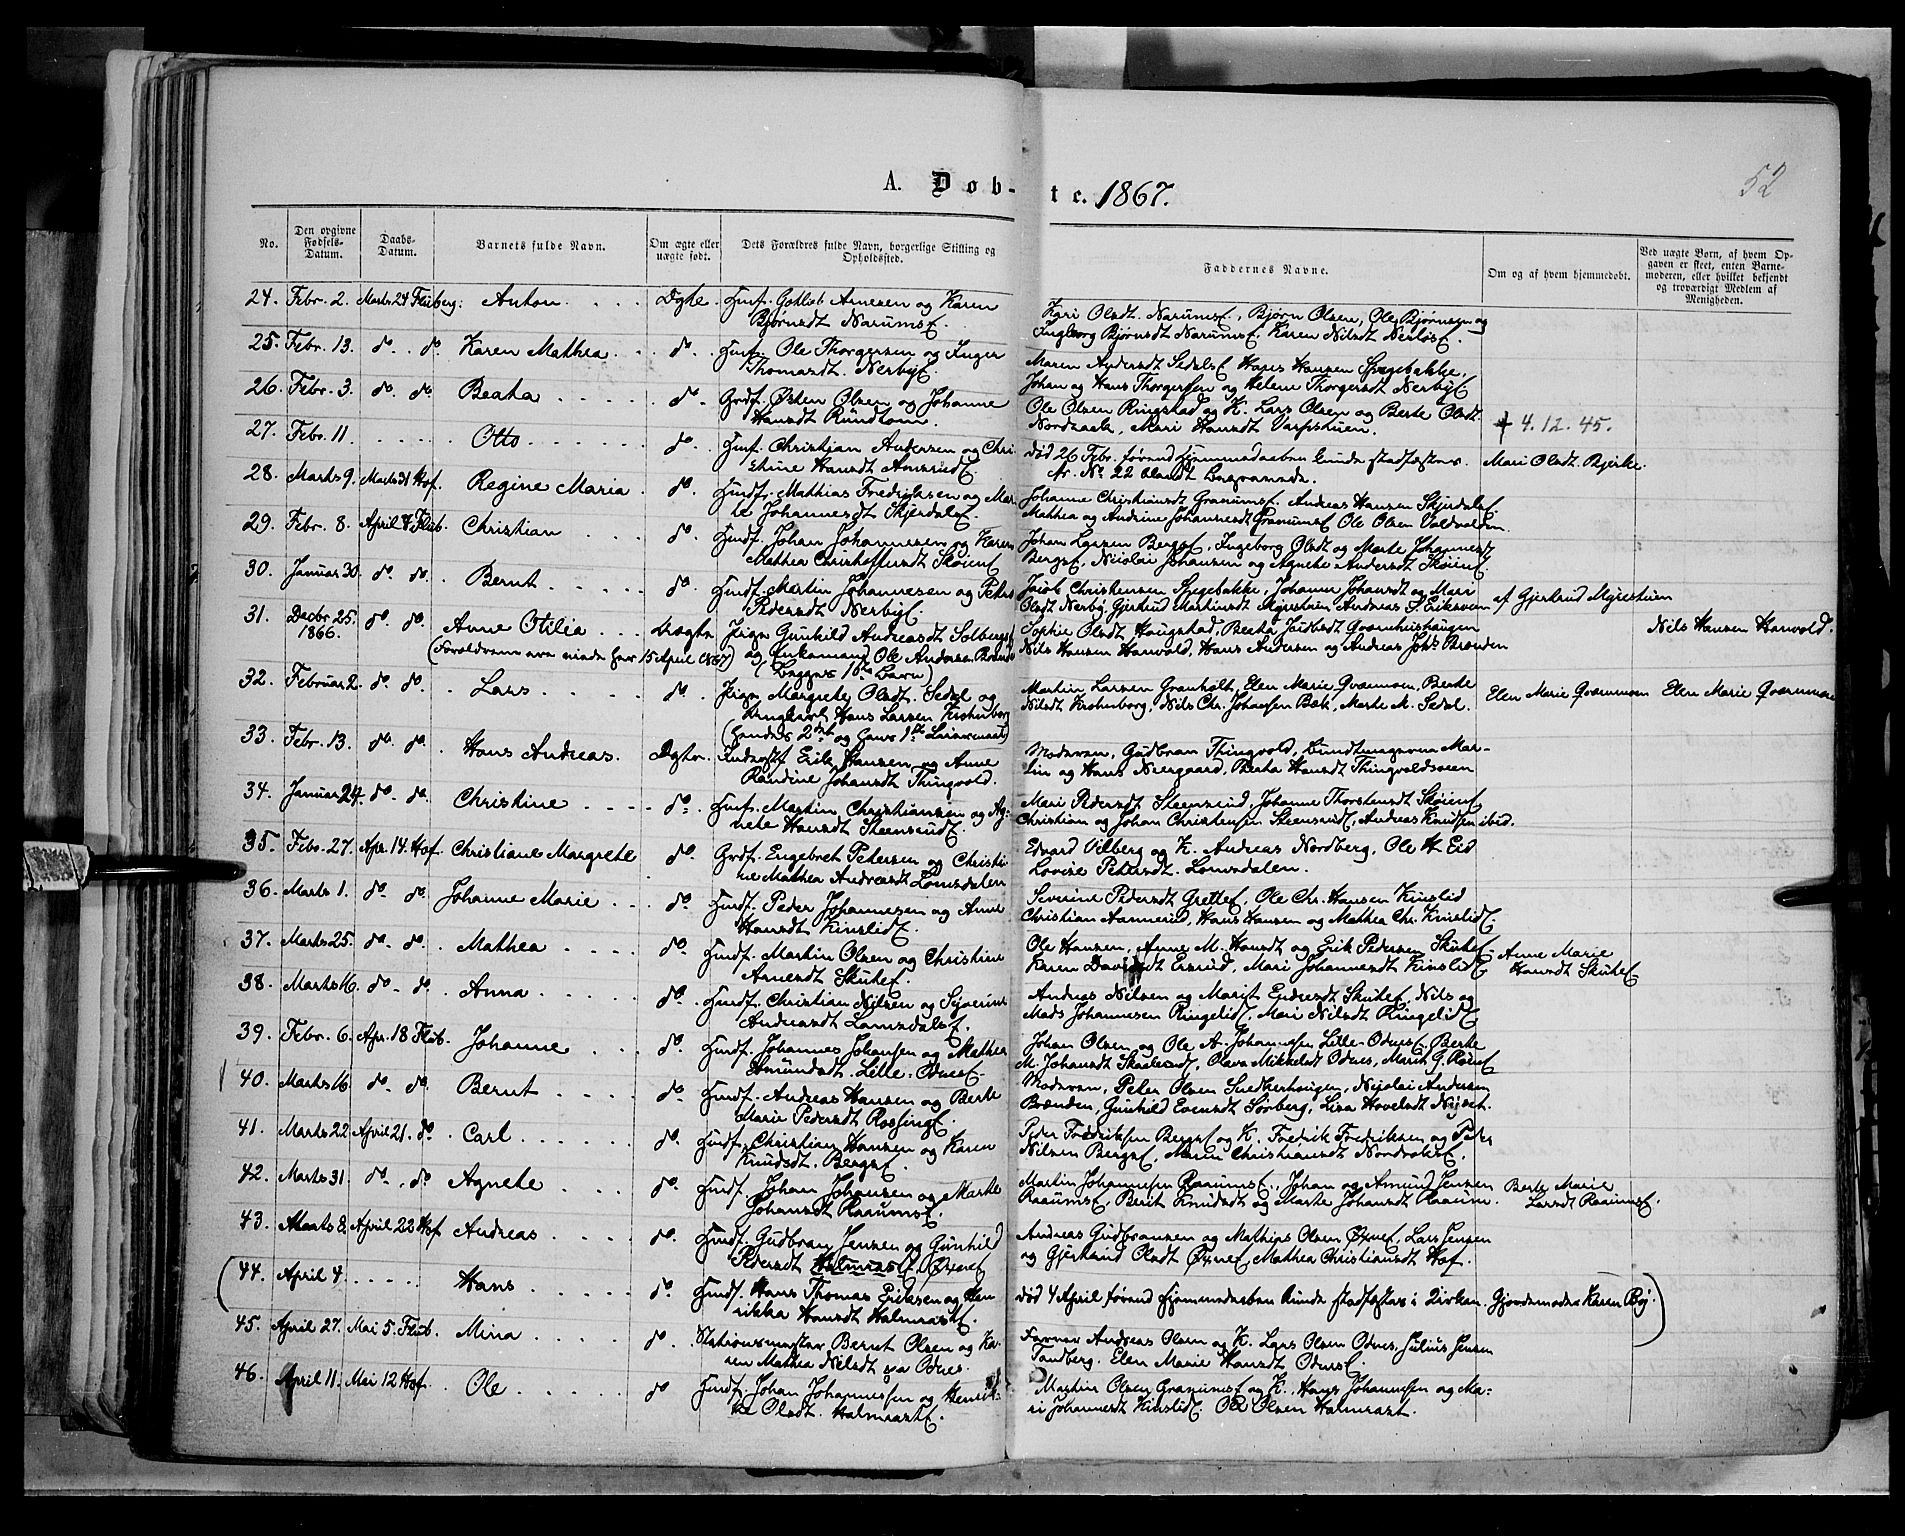 A. Døb-te. 1867.
52
No.
Den opgivne Fødsels-Datum.
Daabs-Datum.
Barnets fulde Navn.
Om ægte eller uægte født.
Dets Forældres fulde Navn, borgerlige Stilling og Opholdssted.
Faddernes Navne.
Om og af hvem hjemmedøbt.
Ved uægte Børn, af hvem Opgaven er skeet, enten Barnemoderen, eller hvilket bekjendt og troværdigt Medlem af Menigheden.
24. Febr. 2. Marts 24 Fluberg. Anton Ægte Husf. Gotlob Arnesen og Karen
Bjørnsdt NarumsE.
Kari Olsdt. NarumsE, Bjørn Olsen, Ole Bjørnsen og
Ingeborg Bjørnsdt NarumsE. Karen Nilsdt
25. Febr. 13. do. do. Karen Mathea do. Husf. Ole Thorgersen og Inger
Thomasdt. NerbyE.
Maren Andersdt SedalsE Hansen Spegebakke,
Johan og Hans Thorgersen og Helene Thorgersdt NerbyE
26. Febr. 3. do. do. Beata do. Grdf. Østen Olsen og Johanne
Hansdt Rundtom.
Ole Olsen Ringstad og K. Lars Olsen og Berte Olsdt
Nordraak, Mari Hansdt
27. Febr. 11. Otto do. Husf. Christian Andersen og Chri-
stine Hansdt
død 26 Febr. førend Hjemmedaaben kunde stadfæstes.
Nr. No 22 blandt Begravede.
† 4.12.45.
Mari Olsdt. Bjerke.
28. Marts 9. Marts 31 Hof. Regine Maria do. Husf. Mathias Fredriksen og Mar-
te Johannesdt SkjerdalsE.
Johanne Christiansdt GranumsE Andreas Hansen SkjerdalsE.
Mathea og Andrine Johannesdt GranumsE Ole Olsen Voldvolden
29. Febr. 8. April 7 Flub. Christian do. Husf. Johan Johannesen og Karen
Mathea Christoffersdt SkøienE
Johan Larsen BergsE, Ingeborg Olsdt og Marte Johannesdt
BergsE, Nicolai Johansen og Agnete Andersdt SkøienE.
30. Januar 30. do. do. Bernt do. Husf. Martin Johannesen og Petra
Pedersdt NerbyE.
Jacob Christensen Spegebakke, Johanne Johansdt og Mari
Olsdt Nerby, Gjertrud Martinsdt Andreas Eriksen
af Gjertrud
31. Decbr 25. 1866. do. do. Anne Otilia Uægte Pigen Gunhild Andreasdt
(Forældrene ere viede her 15 April 1867)
og Enkemand Ole Andersen
(Begges 1ste Barn)
Sophie Olsdt Haugstad, Berta
Nils Hansen Hanvold, Hans Andersen og Andreas Johs Brænden
Nils Hansen Hanvold.
32. Februar 2. do. do. Lars do. Pigen Margrete Olsdt. Sedal og
Ungkarl Hans Larsen Kronborg
(hendes 2det og hans 1ste Leiermaal)
Martin Larsen Granholt, Elen Marie Qværnmoen, Berte
Nilsdt Kronborg, Nils Chr. Johansen Bæk, Marte M. Sedal.
Elen Marie Qværnmoen
Elen Marie Qværnmoen
33. Febr. 13. do. do. Hans Andreas. Ægte Erik Hansen og Anne
Randine Johansdt Thingvold.
Moderen, Gudbran Thingvold, Bundtmagerne Mar-
tin og Hans Neergaard, Berta Hansdt Thingvoldsveen
34. Januar 24. do. do. Christine do. Husf. Martin Christiansen og Ag-
nete Hansdt SteensrudE.
Mari Pedersdt Steensrud, Johanne Thorstensdt SkøienE
Christian og Johan Christensen SteensrudE, Andreas Knudsen ibid.
35. Febr. 27. Apr. 14. Hof. Christiane Margrete do. Grdf. Engebret Petersen og Christi-
ne Mathea Andreasdt Lomsdalen
Edvard Vilberg og K. Andreas Nordberg, Ole H. Eid
Lovise Petersdt. Lomsdalen.
36. Marts 1. do. do. Johanne Marie do. Husf. Peder Johannesen og Anne
Hansdt KinslidE.
Severine Pedersdt GretteE, Ole Chr. Hansen Kinslid
Christian Aannerud, Hans Hansen og Mathea Chr. KinslidE.
37. Marts 25. do. do. Mathea do. Husf. Martin Olsen og Christine
Arnesdt SkuteE.
Ole Hansen, Anne M. Hansdt og Erik Pedersen SkuteE
Karen Davidsdt Mari Johannesdt KinslidE
Anne Marie
Hansdt SkuteE
38. Marts 16. do. do. Anna do. Husf. Christian Nilsen og Syverine
Andersdt LomsdalsE.
Andreas Nilsen og Marit Endresdt SkuteE, Nils og
Mads Johannesen RingelidE, Mari Nilsdt RingelidE
39. Febr. 6. Apr. 18 Flub. Johanne do. Husf. Johannes Johansen og Mathea
Amundsdt. Lille-OdnesE.
Johan Olsen og Ole A. Johannsen Lille-OdnesE, Berte
M. Johansdt Olava Mikkelsdt Odnes, Marit G.
40. Marts 16 do. do. Bernt do. Husf. Andreas Hansen og Berte
Marie Pedersdt RossingE.
Moderen, Peter Olsen Snedkerhaugen, Nicolai Andersen
Brænden, Gunhild Evensdt Sørberg, Lisa Hovelsdt
41. Marts 22 April 21. do. Carl do. Husf. Christian Hansen og Karen
Knudsdt. BergsE.
Peder Fredriksen BergsE og K. Fredrik Fredriksen og Peder
Nilsen BergsE, Maren Christiansdt
42. Marts 31 do. do Agnete do. Husf. Johan Johansen og Marte
Johansdt RaaumsE.
Martin Johannesen RaaumsE, Johan og Amund Jensen
RaaumsE, Berit Knudsdt og Marte Johansdt Raaum.
Berte Marie
Larsdt RaaumsE.
43. Marts 8. April 22 Hof Andreas do. Husf. Gudbran Jensen og Gunhild
Pedersdt HalmrastE ØxneE
Andreas Gudbransen og Mathias Olsen ØxneE, Lars Jensen
og Gjertrud Olsdt ØxneE Mathea Christiansdt Hof.
(44. April 4 Hans do. Husf. Hans Thomas Eriksen og Hen-
rikka Hansdt HalmrastE.
død 4 April førend Hjemmedaaben kunde stadfæstes i Kirken.
Gjordemoder Karen Bøj.)
45. April 27. Mai 5. Flub. Mina do. Stationsmester Bernt Olsen og Ka-
ren Mathea Nilsdt paa Odnes.
Farver Andreas Olsen og K. Lars Olsen Odnes, Julius Jensen
Tandberg. Elen Marie Hansdt OdnesE.
46. April 11. Mai 12 Hof. Ole do Husf. Johan Johannessen og Henrik-
ke Olsdt. HalmrastE.
Martin Olsen GranumsE og K., Hans Johannsen og Ma-
ri Johannesdt KinslidE. Ole Olsen Halmrast.